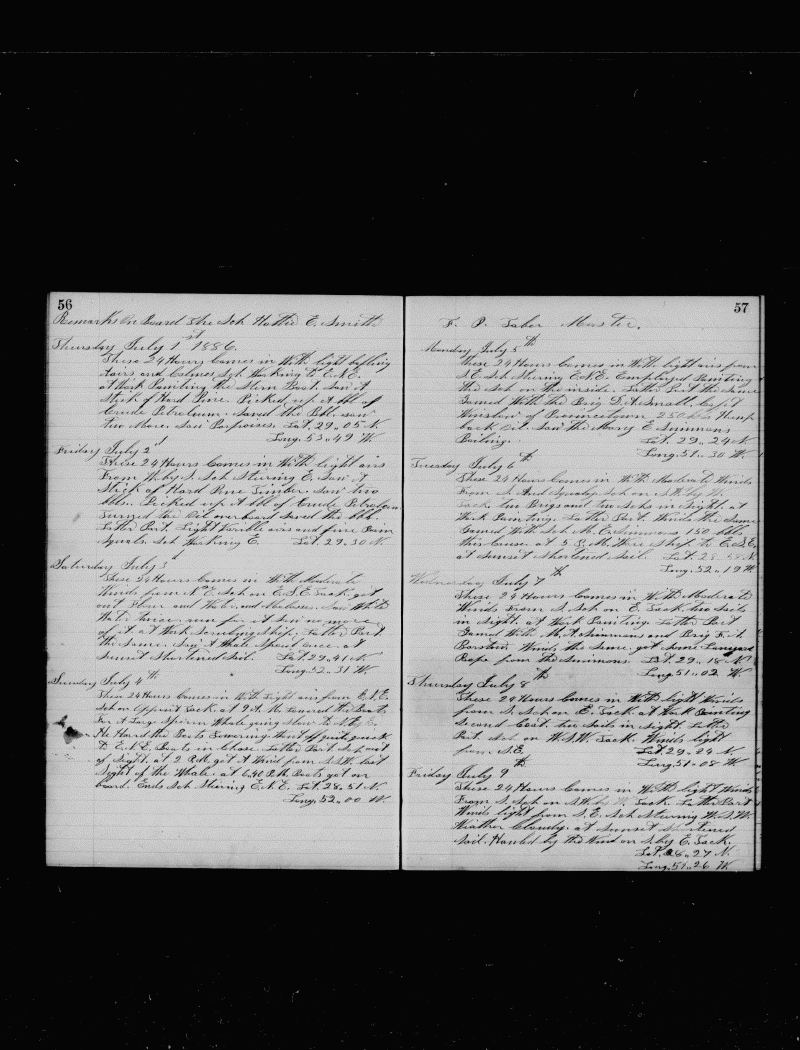 56
Remarks On Board The Sch Hattie E. Smith
Thursday July 1st 1886.
These 24 Hours Comes in With light baffling
airs and Calms Sch Working to E.N.E.
at Work Painting the Stern Boat. Saw A
Stick of Hard Pine. Picked up A bbl of
Crude Petroleum. Saved the Bbl. saw
two More. Saw Porpoises. Lat. 29.. 05 N
Long. 53.. 49 W.
Friday July 2d
These 24 Hours Comes in With light airs
From W. by S. Sch Stearing E. Saw A
Stick of Hard Pine Timber. Saw two
bbls. Picked up A bbl of Crude Petroleum
Turned the Oil overboard Saved the bbl.
Latter Part. Light airs and fine Rain
Squals. Sch Working E. Lat. 29.. 30 N.
Saturday July 3d
These 24 Hours Comes in With Moderate
Winds from N.E. Sch on E.S.E. Tack. got
out Flour and Water, and Molasses. Saw White
Water twice. run for it Saw no more
of it. at Work Scrubing Ship. Latter Part
the Same. Saw A Whale Spout once. at
Sunset Shortened Sail. Lat. 29.. 41 N.
Long. 52.. 31 W.
Sunday July 4th
These 24 Hours Comes in With Light airs from E.N.E.
Sch on Tack. at 9 A.M. Lowered the Boats
For A Large Sperm Whale going Slow to
He Heard the Boats Lowering Went off quick
to E.N.E. Boats in Chase. Latter Part Sch out
of Sight. at 2 P.M. got A Wind from S.S.W. lost
Sight of the Whale. at 6,40 P.M. Boats got on
board. Ends Sch Stearing E.N.E. Lat. 28.. 51 N
Long. 52.. 00 W.
57
F. P. Taber Master.
Monday July 5th
These 24 Hours Comes in With light airs from
S.E. Sch Stearing E.N.E. Employed Painting
the Sch on the inside. Latter Part the Same
Gamed With the Brig D. A. Small, Capt
Winslow of Provincetown. 250 bbls Hump
back Oil. Saw the Mary E Simmons
Boiling. Lat. 29.. 24 N
Long. 51.. 30 W.
Tuesday July 6th
These 24 Hours Comes in With Moderate Winds
From S. And Squaly. Sch on S.W. by W.
Tack. two Brigs and two Schs in Sight. at
Work Painting. Latter Part. Winds the Same
Gamed With Sch M. E. Simmons 180 bbls.
this Cruise. at 5 P.M. Wore Ship to E.S.E.
at Sunset Shortened Sail. Lat. 28.. N.
Long. 52.. 19 W.
Wednesday July 7th
These 24 Hours Comes in With Moderate
Winds From S. Sch on E. Tack. two Sails
in Sight. at Work Painting. Latter Part
Gamed With M. E. Simmons and Brig F. H.
Winds the Same. got Some Lanyard
Rope from the Simmons. Lat. 29.. 18 N
Long. 51.. 02 W.
Thursday July 8th
These 24 Hours Comes in With light Winds
from S. Sch on E. Tack at Work Painting
Second Coat. two Sails in Sight. Latter
Part. Sch on W.S.W. Tack. Winds light
from S.E. Lat. 29.. 24 N.
Long. 51.. 08 W.
Friday July 9th
These 24 Hours Comes in With light Winds
From S. Sch on S.W. by W. Tack. Latter Part
Winds light from S.E. Sch Stearing W.S.W.
Weather Cloudy. at Sunset Shortened
Sail. Hauled by the Wind on S. by E. Tack.
Lat. 28.. 27 N.
Long. 51.. 26 W